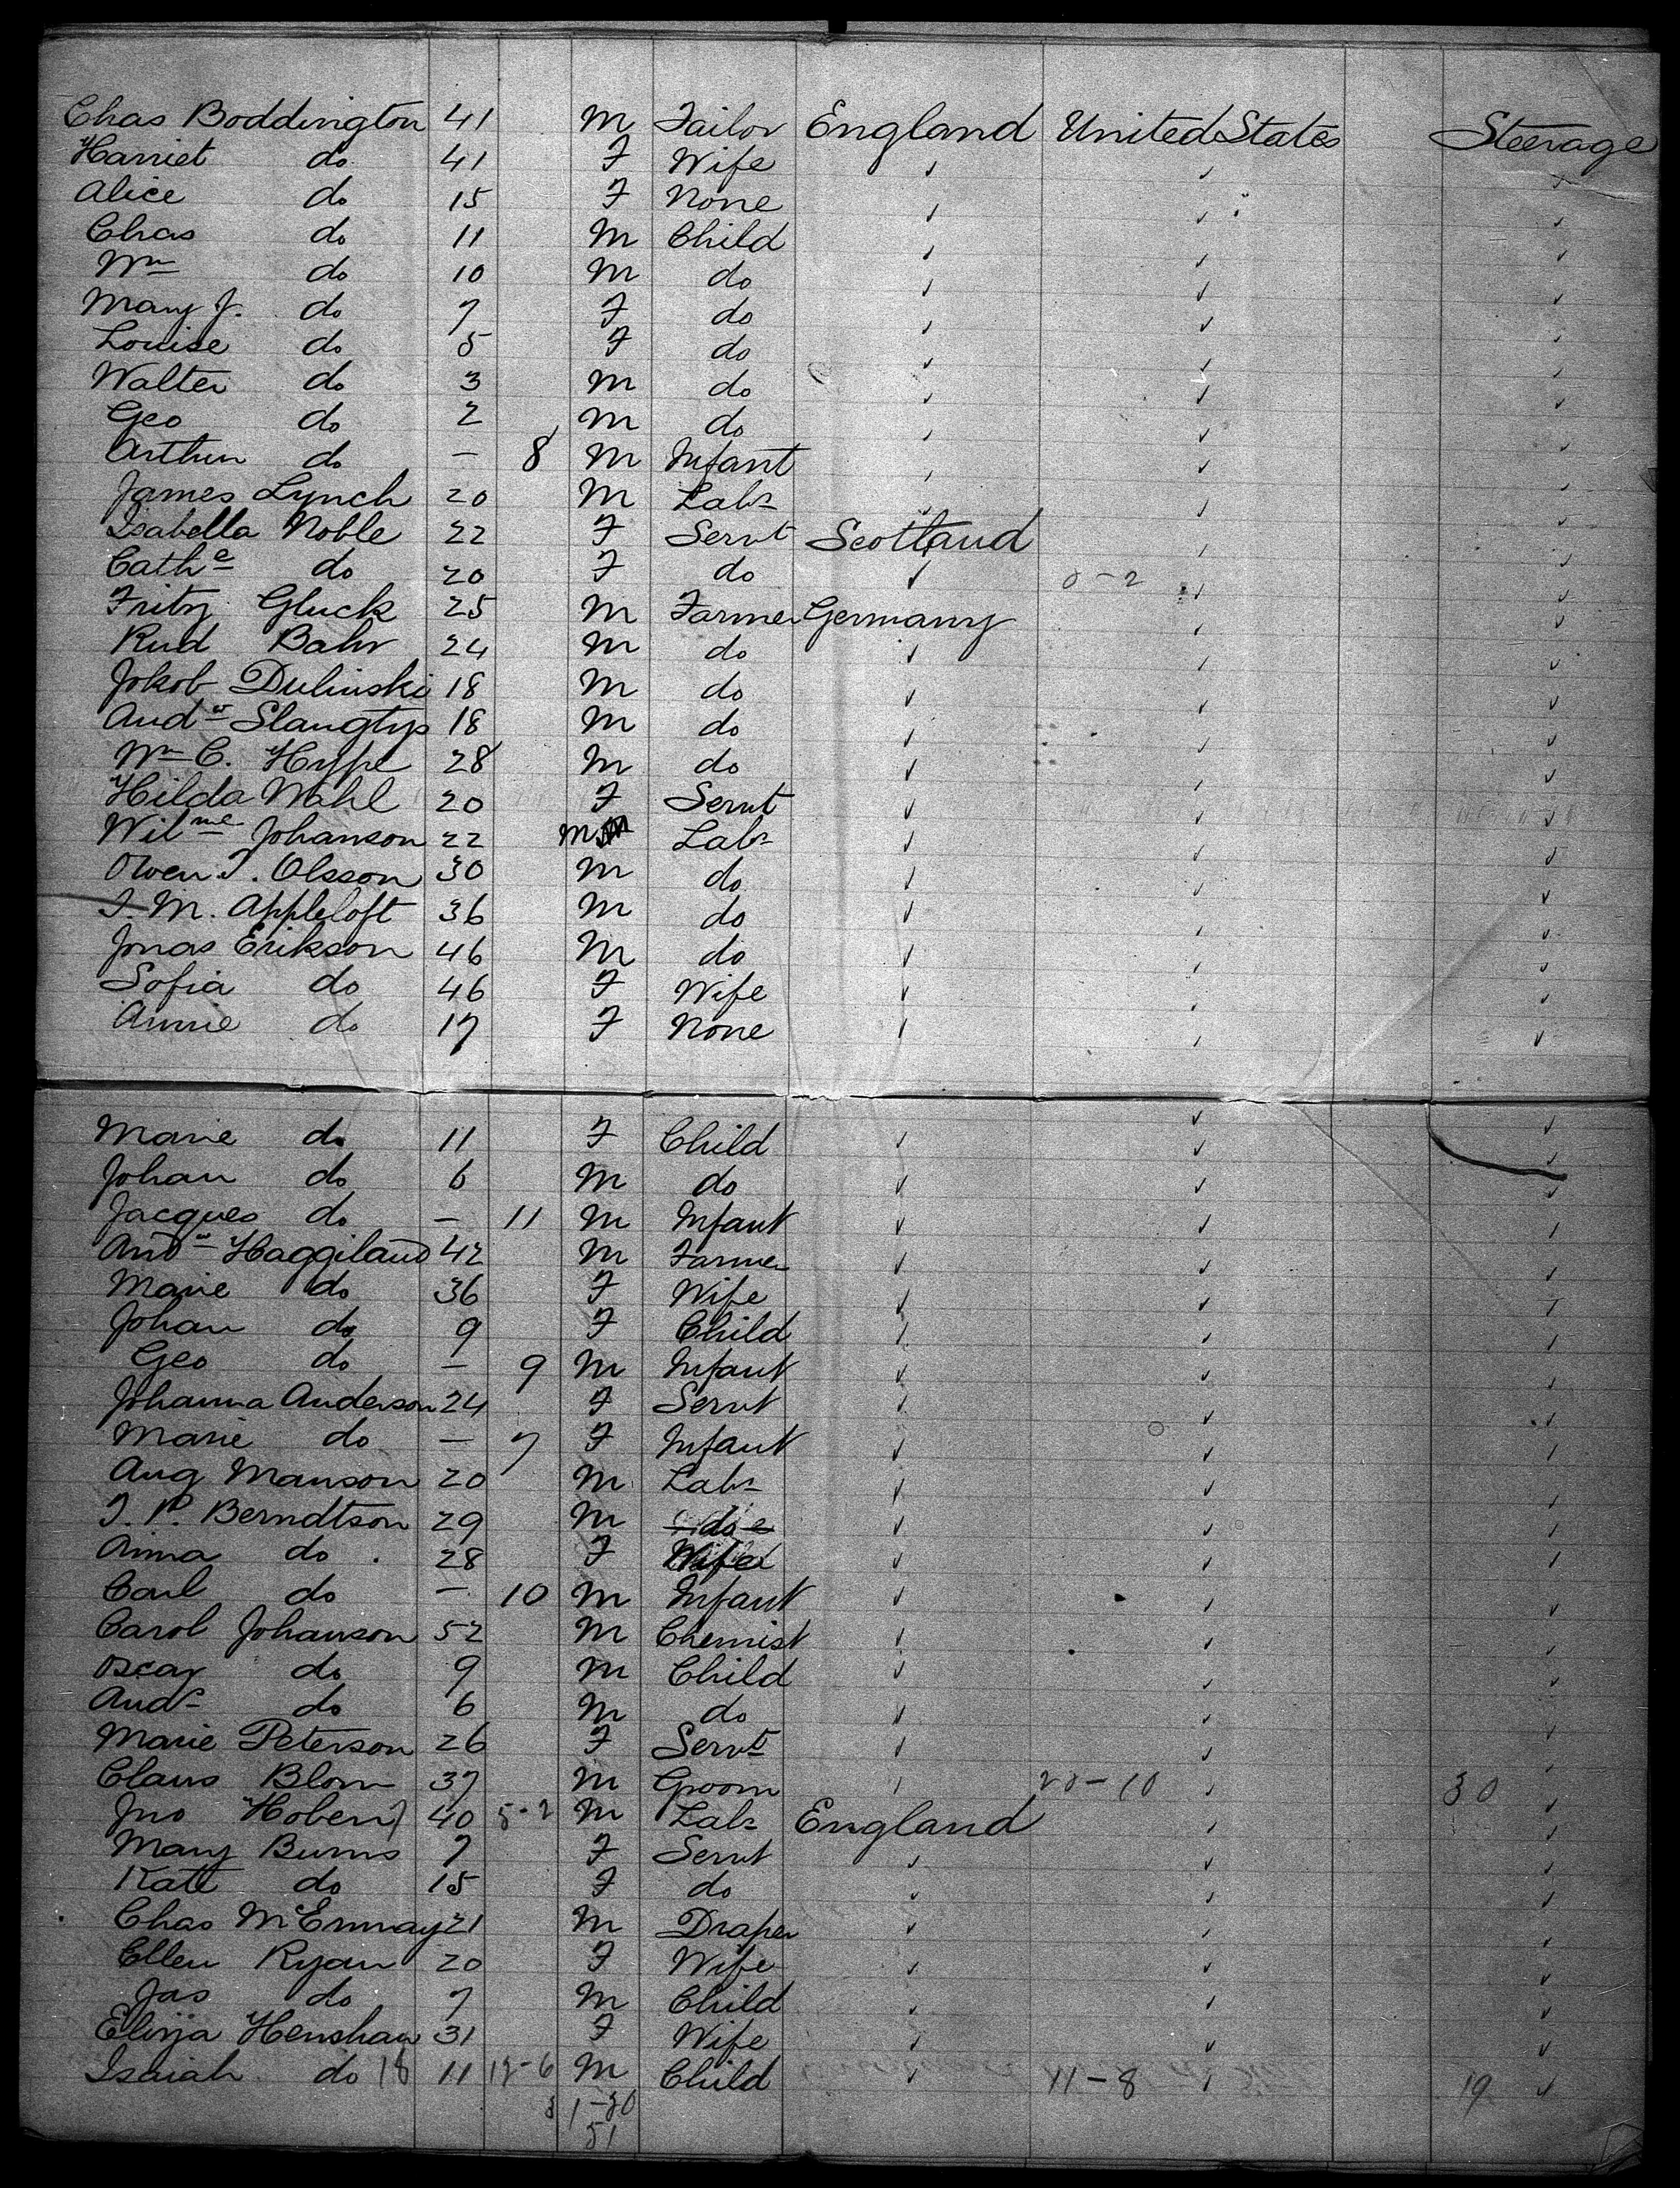 Chas Boddington 41 M Tailor England United States Steerage
Harriet do 41 F Wife ✓ ✓ ✓
Alice do 15 F None ✓ ✓ ✓
Chas do 11 M Child ✓ ✓ ✓
Wm do 10 M do ✓ ✓ ✓
Mary J. do 7 F do ✓ ✓ ✓
Louise do 5 F do ✓ ✓ ✓
Walter do 3 M do ✓ ✓ ✓
Geo do 2 M do ✓ ✓ ✓
Arthur do — 8 M Infant ✓ ✓ ✓
James Lynch 20 M Labr ✓ ✓ ✓
Isabella Noble 22 F Servt Scotland ✓ ✓
Cathe do 20 F do ✓ 8-2 ✓ ✓
Fritz Gluck 25 M Farmer Germany ✓ ✓
Rud Bahr 24 M do ✓ ✓ ✓
Jokob Dulinski 18 M do ✓ ✓ ✓
Andw Slangtyp 18 M do ✓ ✓ ✓
Wm C. Hyfe 28 M do ✓ ✓ ✓
Hilda Wahl 20 F Servt ✓ ✓ ✓
Wilme Johanson 22 M Labr ✓ ✓ ✓
Owen T. Olsson 30 M do ✓ ✓ ✓
T. M. Appleloft 36 M do ✓ ✓ ✓
Jonas Erikson 46 M do ✓ ✓ ✓
Sofia do 46 F Wife ✓ ✓ ✓
Annie do 17 F None ✓ ✓ ✓
Marie do 11 F Child ✓ ✓ ✓
Johan do 6 M do ✓ ✓ ✓
Jacques do — 11 M Infant ✓ ✓ ✓
Andw Haggiland 42 M Farmer ✓ ✓ ✓
Marie do 36 F Wife ✓ ✓ ✓
Johan do 9 F Child ✓ ✓ ✓
Geo do — 9 M Infant ✓ ✓ ✓
Johanna Anderson 24 F Servt ✓ ✓ ✓
Marie do — 7 F Infant ✓ ✓ ✓
Aug Manson 20 M Labr ✓ ✓ ✓
T. P. Berndtson 29 M do ✓ ✓ ✓
Anna do 28 F Wife ✓ ✓ ✓
Carl do — 10 M Infant ✓ ✓ ✓
Carol Johanson 52 M Chemist ✓ ✓ ✓
Oscar do 9 M Child ✓ ✓ ✓
Andr do 6 M do ✓ ✓ ✓
Marie Peterson 26 F Servt ✓ ✓ ✓
Claus Blom 37 M Groom ✓ 20-10 ✓ 30 ✓
Jno Hoben 40 5-2 M Labr England ✓ ✓
Mary Burns 7 F Servt ✓ ✓ ✓
Kate do 15 F do ✓ ✓ ✓
Chas McEnnay 21 M Draper ✓ ✓ ✓
Ellen Ryan 20 F Wife ✓ ✓ ✓
Jas do 7 M Child ✓ ✓ ✓
Eliza Henshaw 31 F Wife ✓ ✓ ✓
Isaiah do 18 11 12-6 M Child ✓ 11-8 ✓ 19 ✓
1-30
51